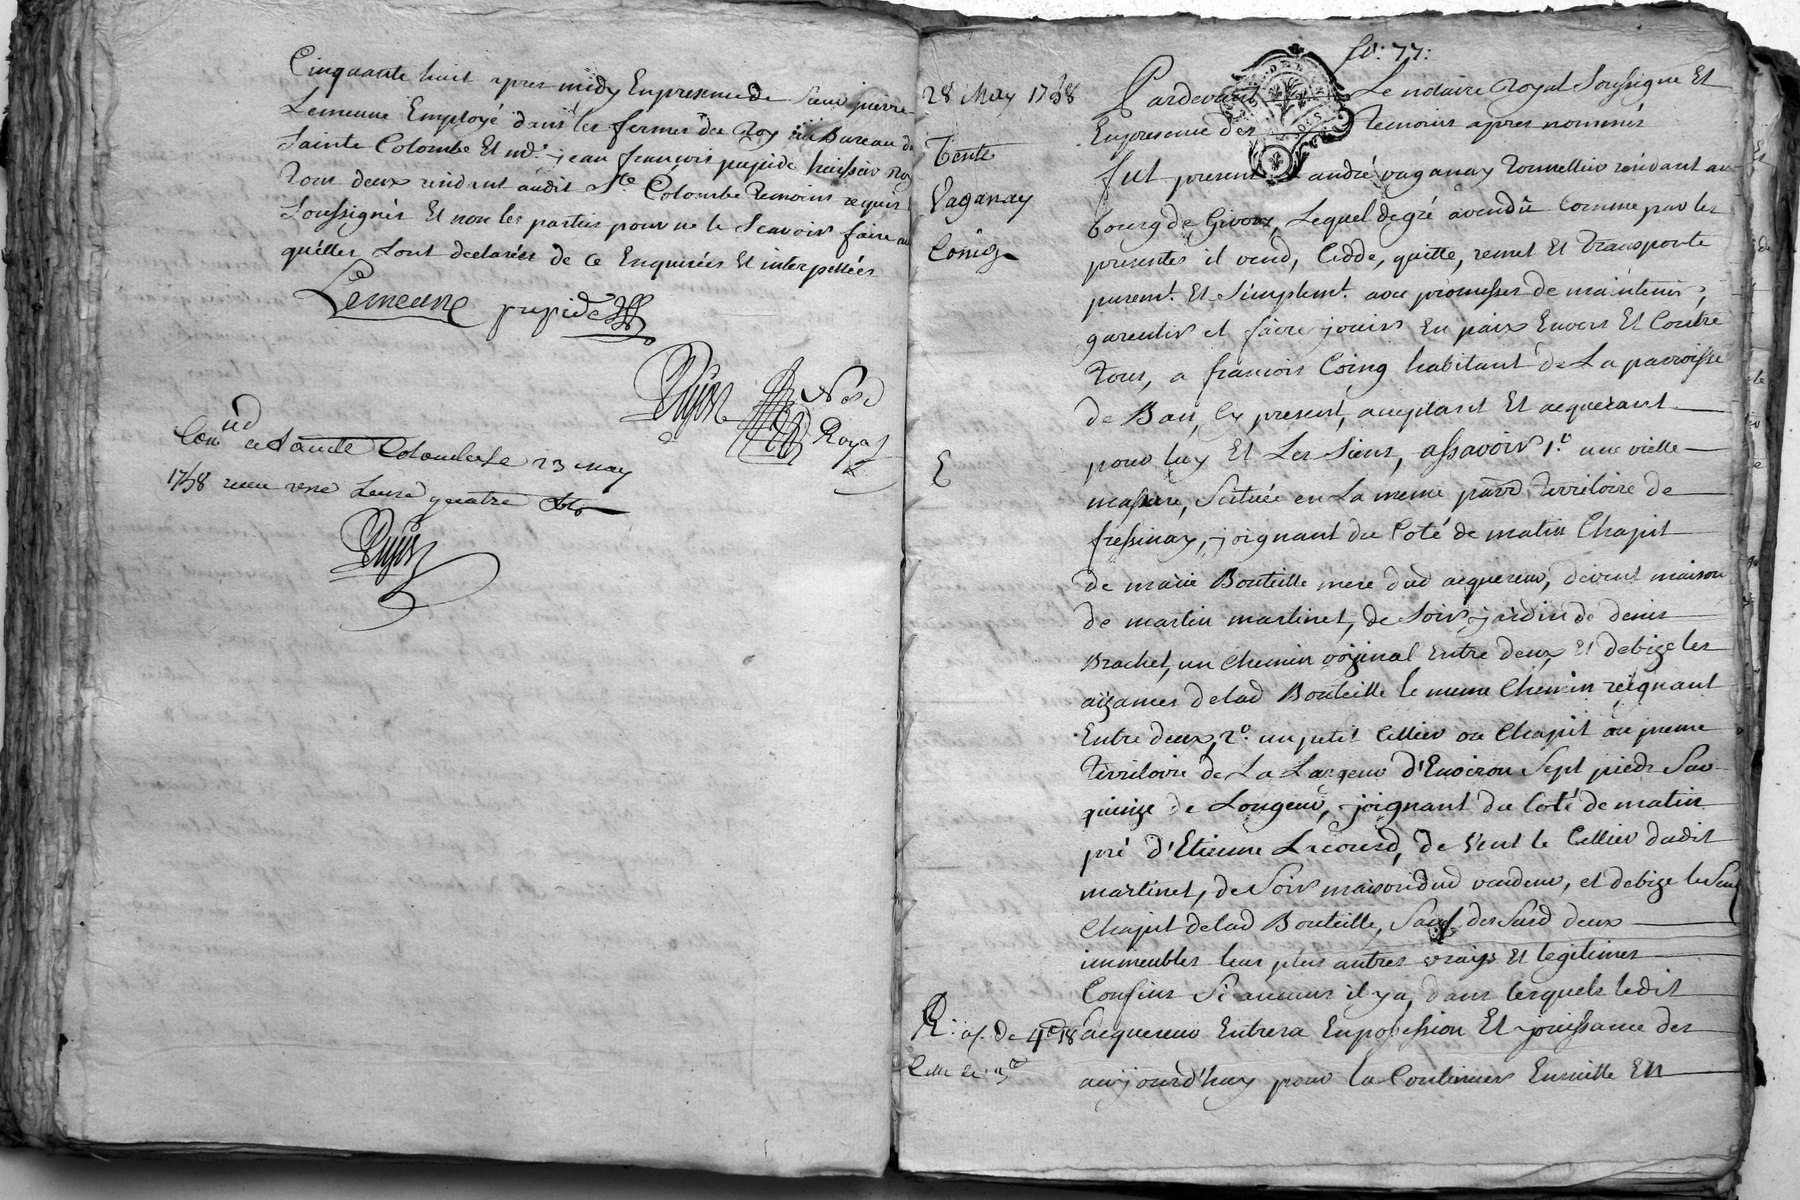 Cinquante huit apres midy En presence de Sieur pierre
Lemeune Employé dans les fermes du Roy au Bureau de
Sainte Colombe Et md.^e jean françois prejide huissier Roy
Tous deux residant audit S^te Colombe Temoins requis
Soussignés Et non les parties pour ne le Scavoir faire
qu'elles sont declarées de ce Enquises Et interpellées
Lemeune prepide
Dujon No.^e
Royal
Con^lled a Sainte Colombe le 23 may
1758 receu une Livre quatre sols
Dujon
f.^o: 77:
28 May 1758
Vente
Vaganay
Coing
Pardevant Le notaire Royal Soussigné Et
En presence des Temoins apres nommés
fut present andré vaganay Tonnellier residant au
bourg de Givors, Lequel de gré a vendu Comme par les
presentes il vend, Cedde, quitte, remet Et Transporte
purem.^t Et Simplem.^t avec promesses de maintenir,
garentir et faire jouir En paix Envers Et Contre
Tous, a francois Coing habitant de La parroisse
de Ban, Cy present, acceptant Et acquerant
E
pour luy Et Les Siens, assavoir 1.^o une vielle
masure, Scituée en La meme parr^e Territoire de
fressinay, joignant du Coté de matin Chapit
de marie Bouteille mere dud acquereur, devent maison
de martin martinet, de Soir jardin de denis
Brachet, un Chemin voisinal Entre deux, Et de bize les
aizances de lad Bouteille le meme Chemin reignant
Entre deux, 2.^o un petit Cellier ou Chapit au meme
Territoire de La Largeur d'Environ Sept pieds Sur
quinze de Longeur, joignant du Coté de matin
pré d'Etienne Lacourd, de Vent le Cellier dudit
martinet, de Soir maison dud vendeur, et de bize le Seul
Chapit de lad Bouteille, Sauf des Susd deux
immeubles leurs plus autres vrais Et legitimes
Confins Si aucuns il y a, dans lesquels ledit
acquereur Entrera En possession Et jouissance des
aujourd'huy pour la Continuer Ensuitte En